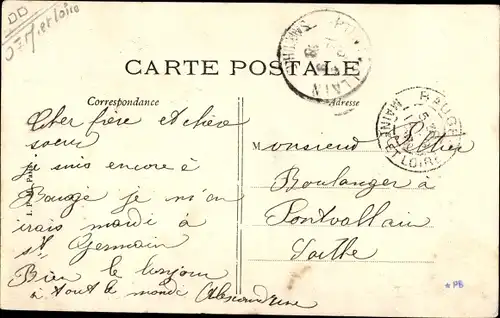 DD
M et Loire
CARTE POSTALE
Correspondance
Adresse
Cher frère et chère
soeur
je suis encore à
Baugé je m'en
irais mardi à
St Germain
Bien le bonjour
à tout le monde Alexandrine
Monsieur Peltier
Boulanger à
Pontvallain
Sarthe
BAUGÉ
MAINE ET LOIRE
*PB